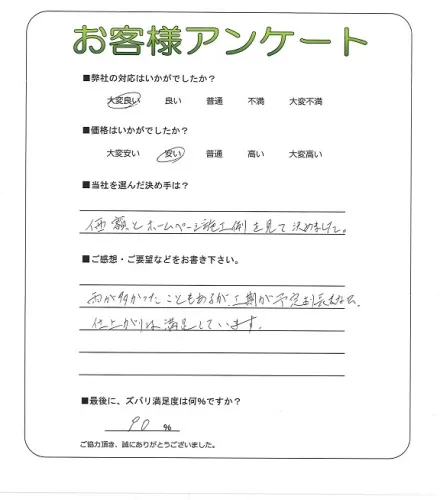 お客様アンケート
■弊社の対応はいかがでしたか？
大変良い 良い 普通 不満 大変不満
■価格はいかがでしたか？
大変安い 安い 普通 高い 大変高い
■当社を選んだ決め手は？
価額とホームページ施工例を見て決めました。
■ご感想・ご要望などをお書き下さい。
雨が多かったこともあるが、工期が予定より長
仕上がりは満足しています。
■最後に、ズバリ満足度は何%ですか？
90 %
ご協力頂き、誠にありがとうございました。